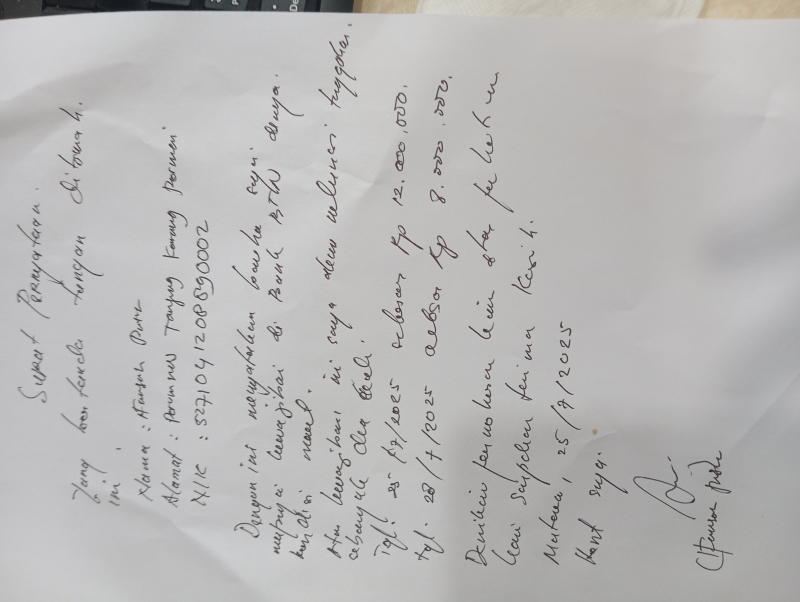 Surat Pernyataan.
Yang bertanda tangan dibawah
ini :
Nama :
Alamat : Perumnas Tanjung Karang Permai
NIK : 5271041208890002
Dengan ini menyatakan bahwa saya
mempunyai kewajiban di Bank BTN dengan
kondisi macet.
Atas kewajiban ini saya akan melunasi tunggakan
sebanyak dua kali.
Tgl. 25/7/2025 sebesar Rp 12.000.000.
Tgl. 28/7/2025 sebesar Rp 8.000.000.
Demikian permohonan kami atas perhatian
kami ucapkan terima kasih.
Mataram, 25/7/2025
Hormat saya.